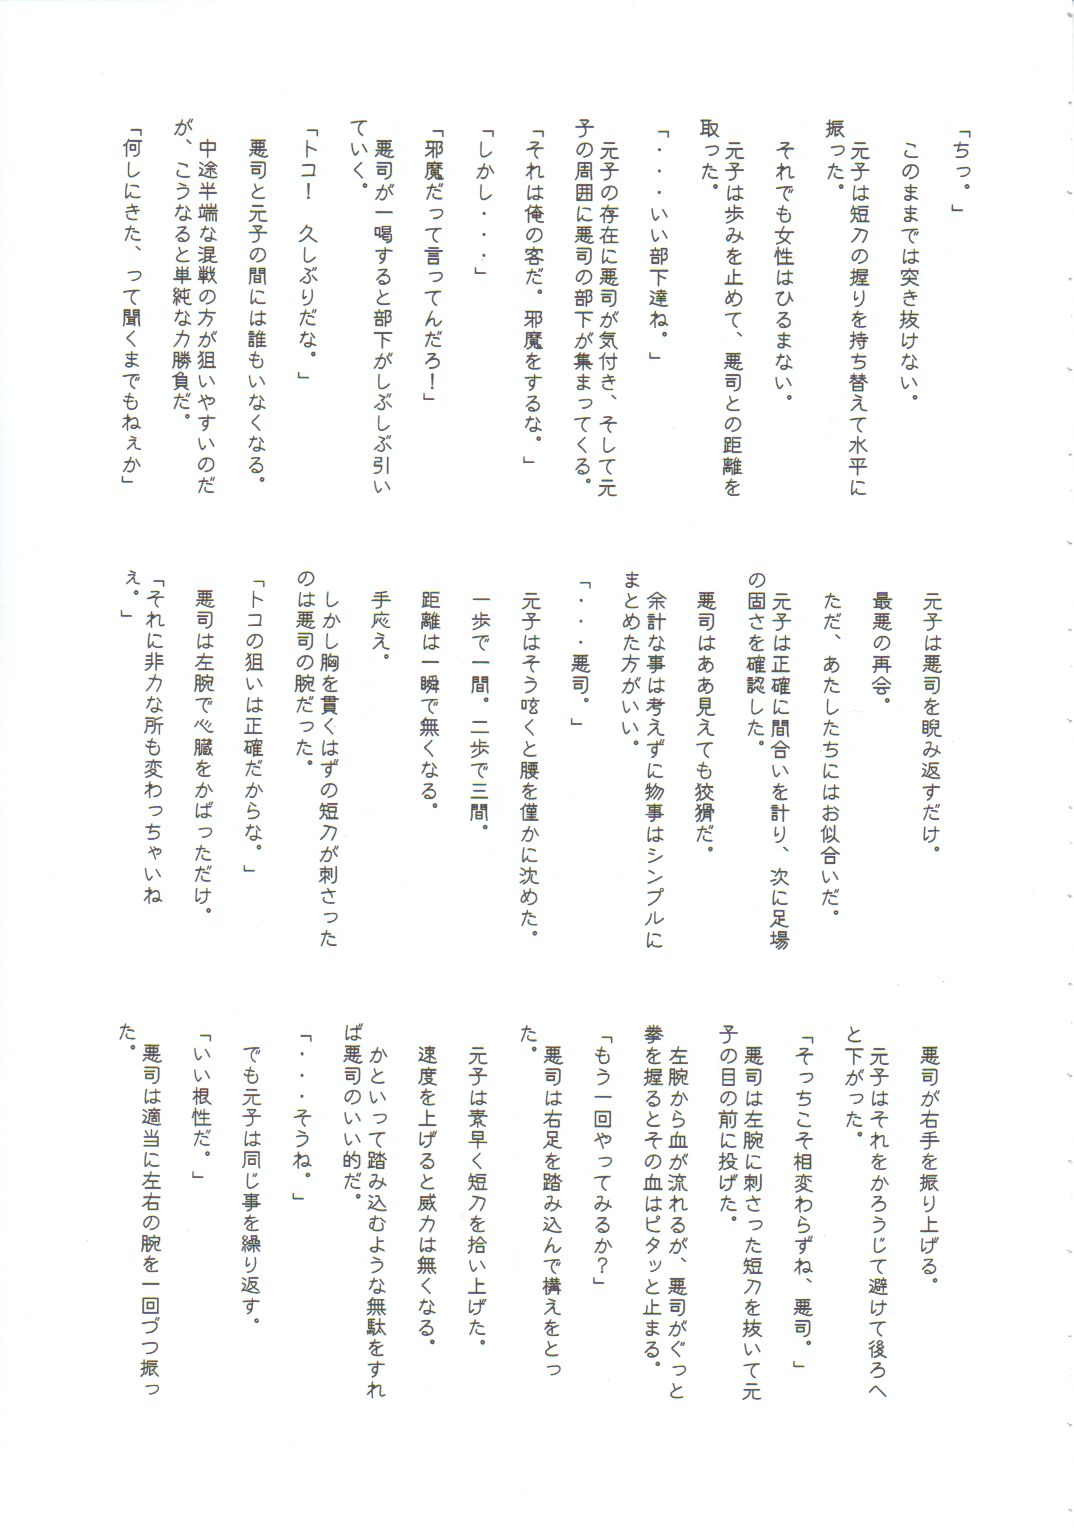 「ちっ。」
このままでは突き抜けない。
元子は短刀の握りを持ち替えて水平に
振った。
それでも女性はひるまない。
元子は歩みを止めて、悪司との距離を
取った。
「・・・いい部下達ね。」
元子の存在に悪司が気付き、そして元
子の周囲に悪司の部下が集まってくる。
「それは俺の客だ。邪魔をするな。」
「しかし・・・」
「邪魔だって言ってんだろ！」
悪司が一喝すると部下がしぶしぶ引い
ていく。
「トコ！　久しぶりだな。」
悪司と元子の間には誰もいなくなる。
中途半端な混戦の方が狙いやすいのだ
が、こうなると単純な力勝負だ。
「何しにきた、って聞くまでもねぇか」
元子は悪司を睨み返すだけ。
最悪の再会。
ただ、あたしたちにはお似合いだ。
元子は正確に間合いを計り、次に足場
の固さを確認した。
悪司はああ見えても狡猾だ。
余計な事は考えずに物事はシンプルに
まとめた方がいい。
「・・・悪司。」
元子はそう呟くと腰を僅かに沈めた。
一歩で一間。二歩で三間。
距離は一瞬で無くなる。
手応え。
しかし胸を貫くはずの短刀が刺さった
のは悪司の腕だった。
「トコの狙いは正確だからな。」
悪司は左腕で心臓をかばっただけ。
「それに非力な所も変わっちゃいね
ぇ。」
悪司が右手を振り上げる。
元子はそれをかろうじて避けて後ろへ
と下がった。
「そっちこそ相変わらずね、悪司。」
悪司は左腕に刺さった短刀を抜いて元
子の目の前に投げた。
左腕から血が流れるが、悪司がぐっと
拳を握るとその血はピタッと止まる。
「もう一回やってみるか？」
悪司は右足を踏み込んで構えをとっ
た。
元子は素早く短刀を拾い上げた。
速度を上げると威力は無くなる。
かといって踏み込むような無駄をすれ
ば悪司のいい的だ。
「・・・そうね。」
でも元子は同じ事を繰り返す。
「いい根性だ。」
悪司は適当に左右の腕を一回づつ振っ
た。